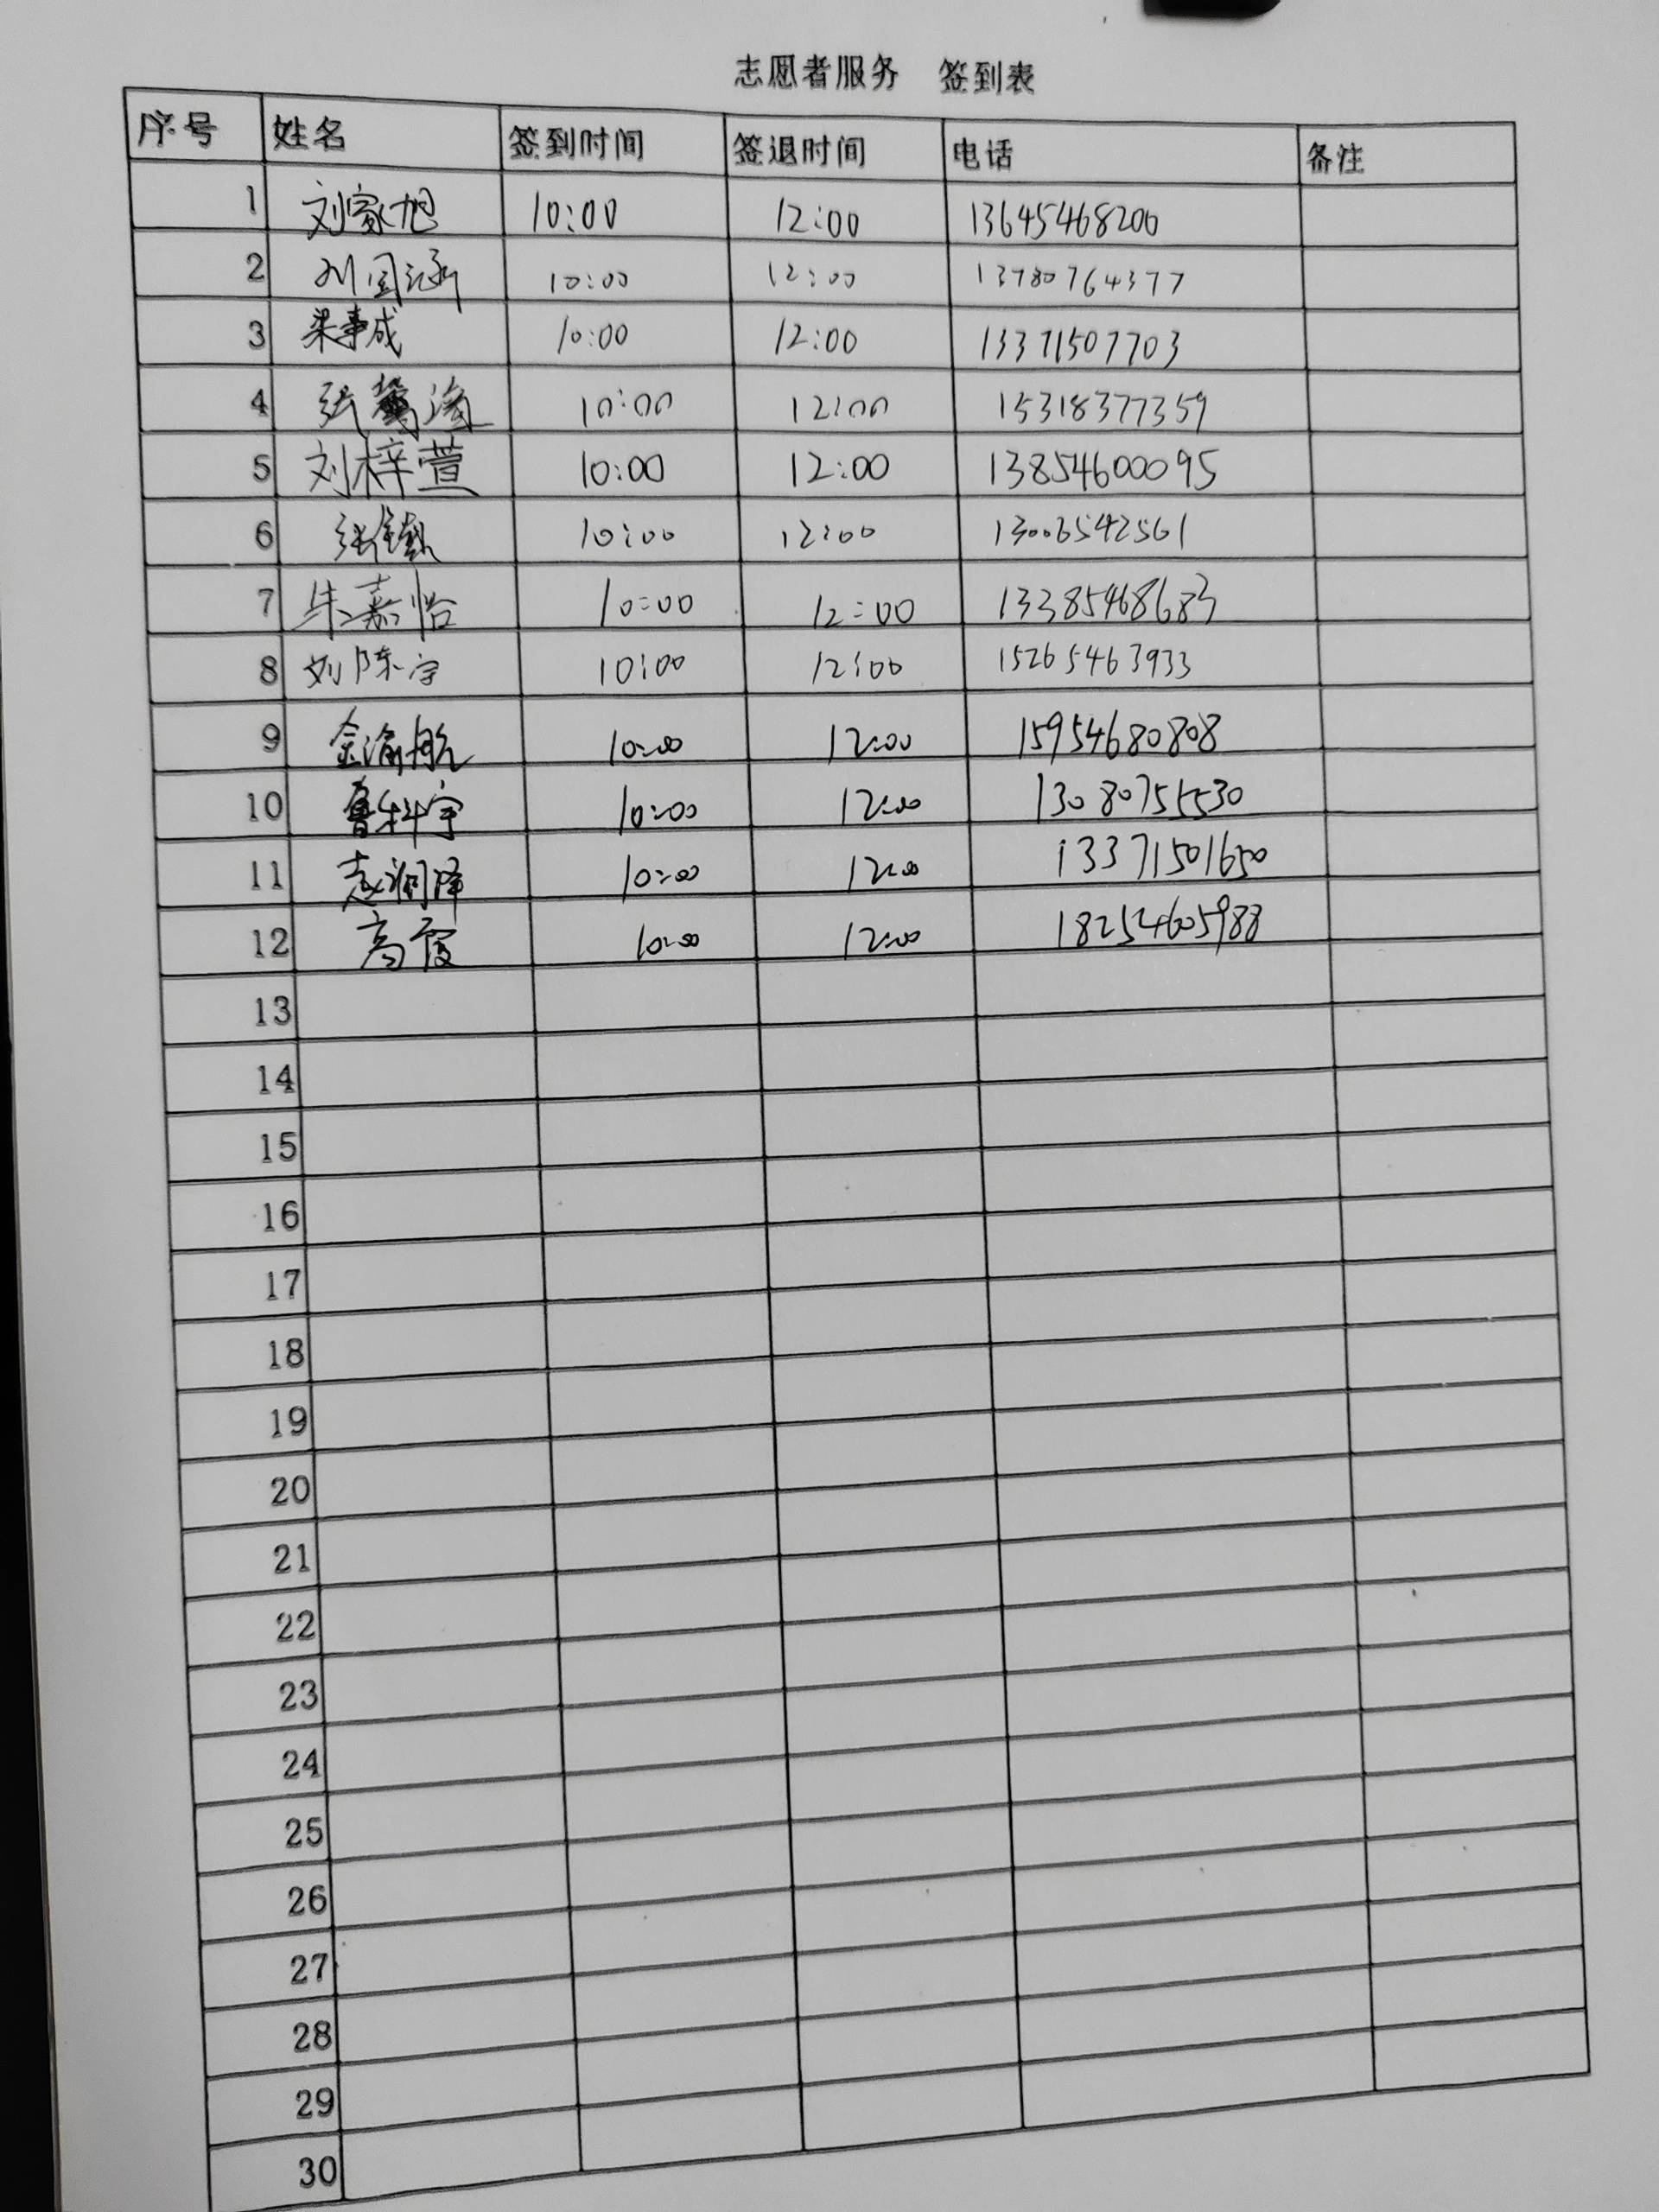 志愿者服务 签到表
序号 姓名 签到时间 签退时间 电话 备注
1 刘家旭 10:00 12:00 13645468200
2 刘国涵 10:00 12:00 13780764377
3 梁事成 10:00 12:00 13371507703
4 张 10:00 12:00 15318377359
5 刘梓萱 10:00 12:00 13854600095
6 张 10:00 12:00 13006542561
7 朱嘉怡 10:00 12:00 13385468683
8 刘陈宇 10:00 12:00 15265463933
9 金渝航 10:00 12:00 15954680808
10 鲁科宇 10:00 12:00 13080755530
11 10:00 12:00 13371501650
12 高霞 10:00 12:00 18254605988
13
14
15
16
17
18
19
20
21
22
23
24
25
26
27
28
29
30